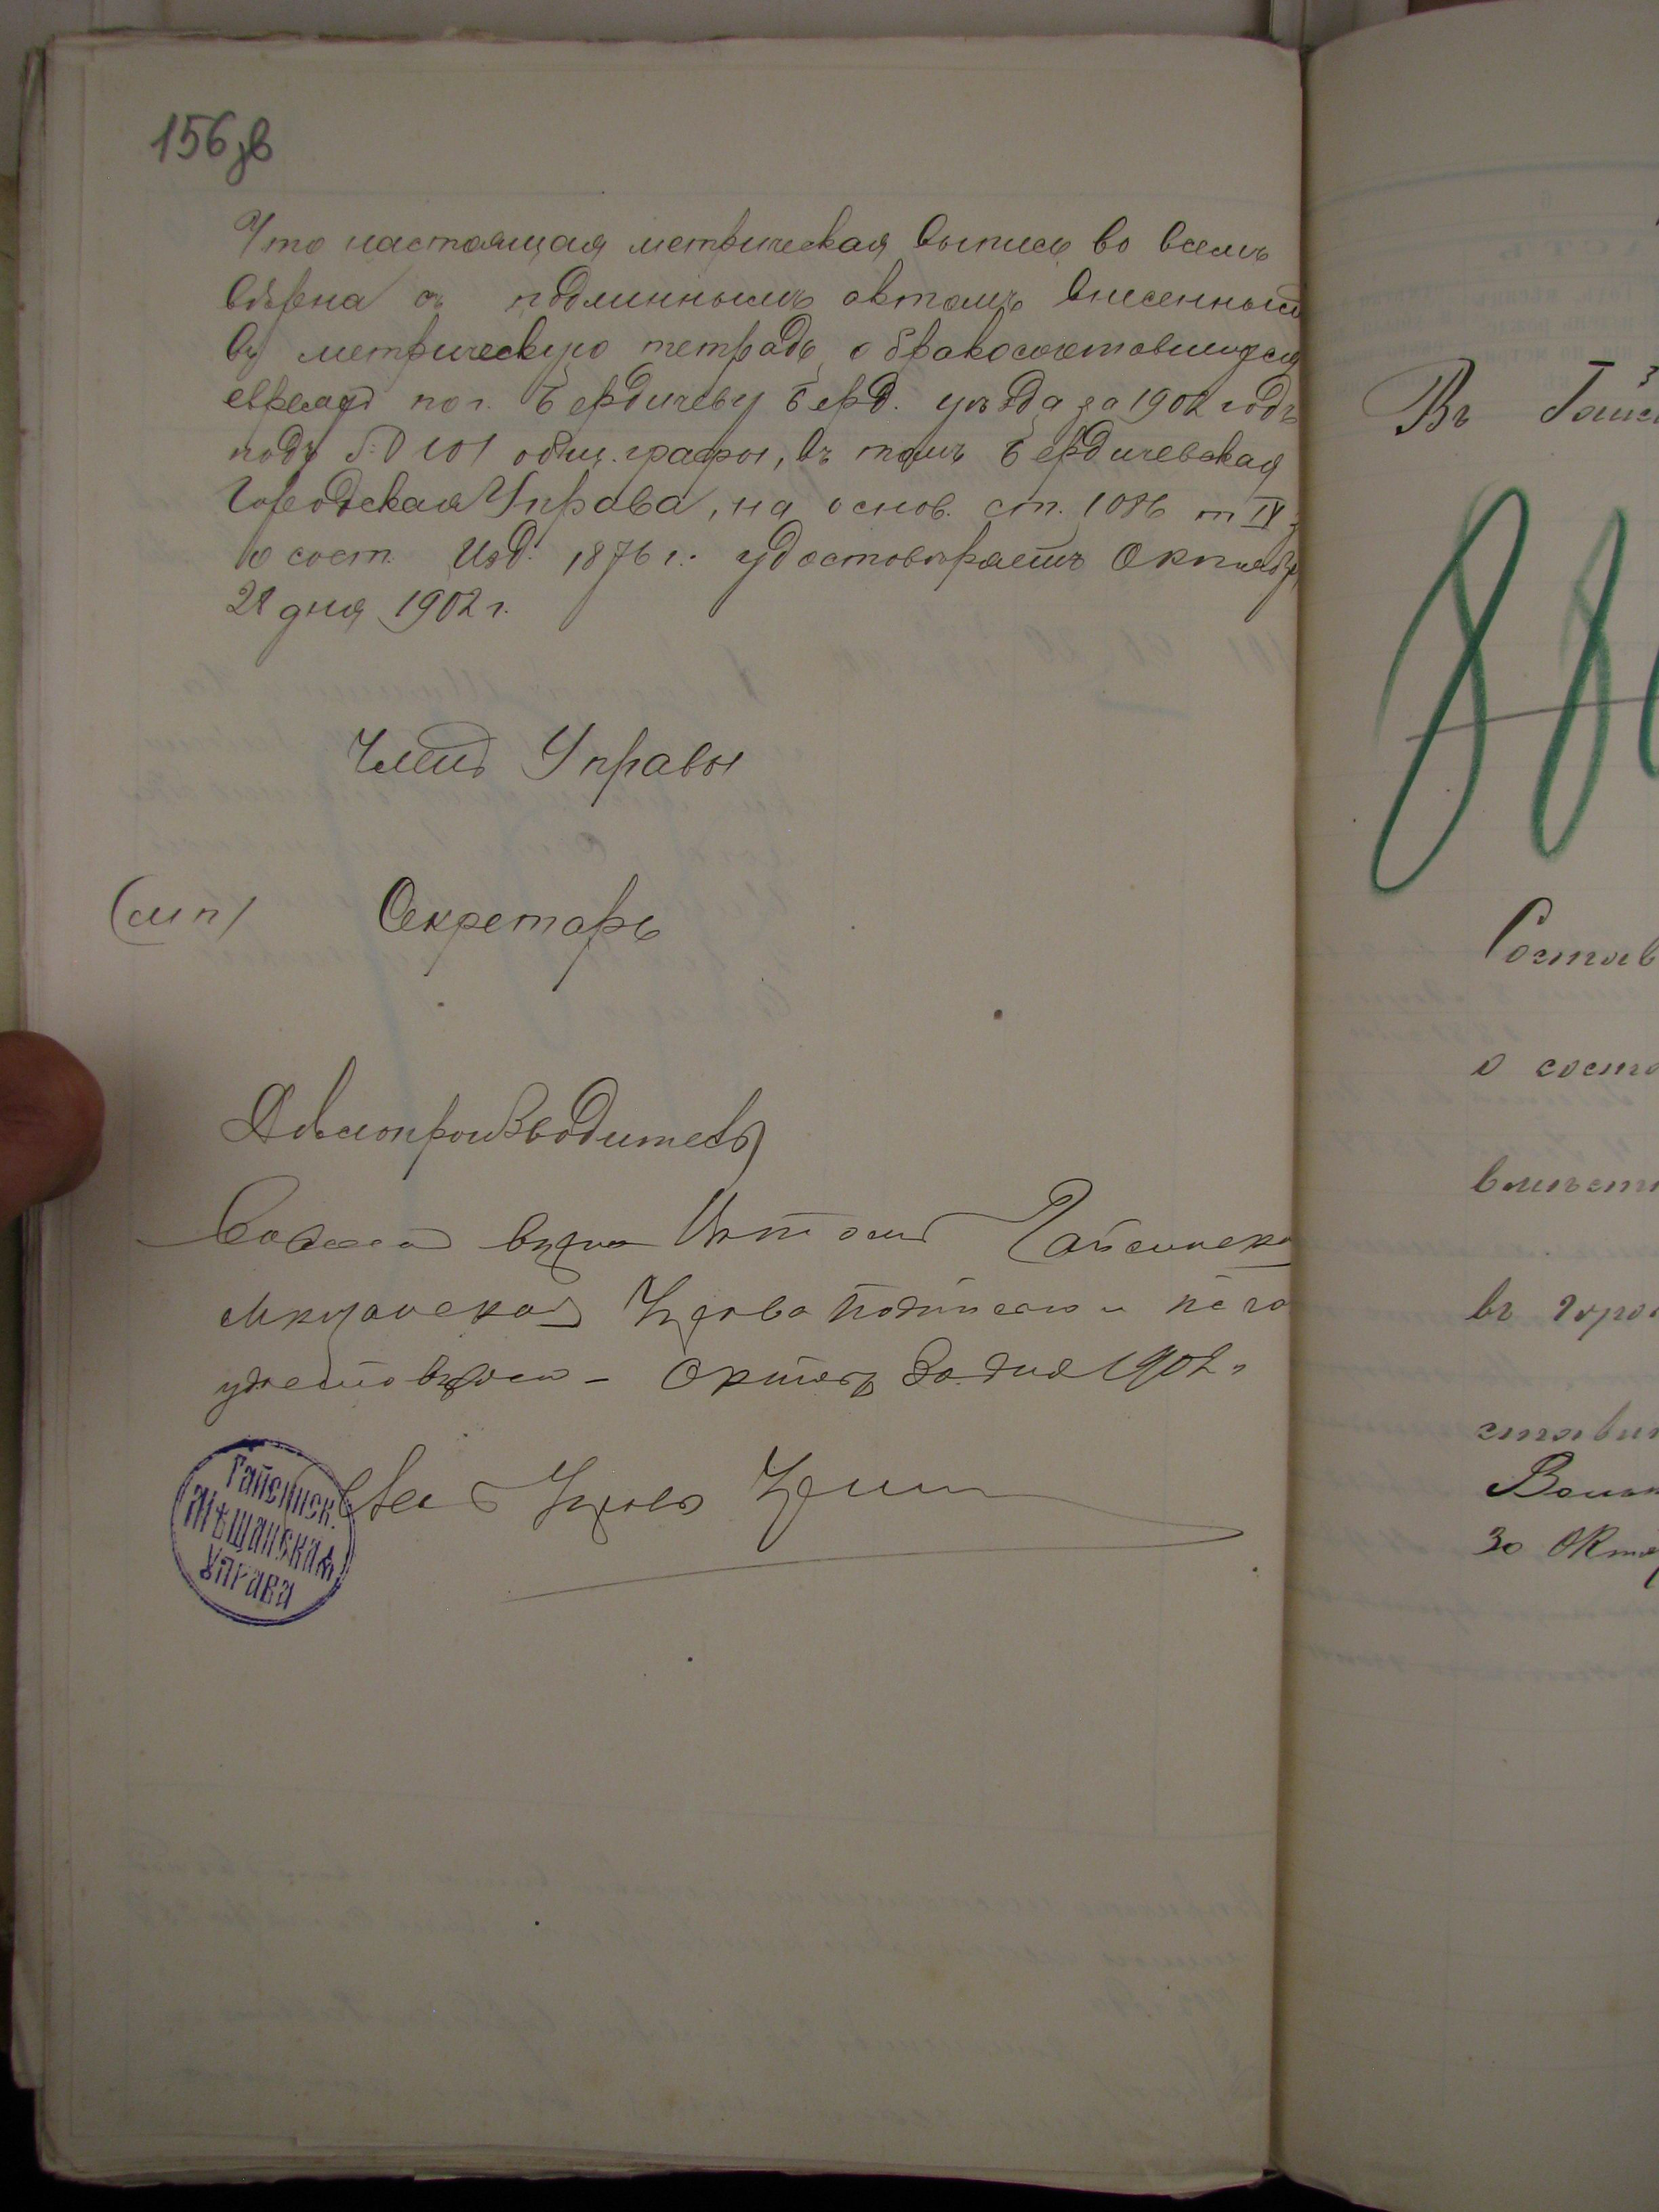 156 зв
Что настоящая метрическая выпись во всемъ
вѣрна съ подлиннымъ актомъ внесеннымъ
въ метрическую тетрадь о бракосочетавшихся
евреяхъ по г. Бердичеву Берд. уѣзда за 1902 годъ
подъ № 101 общ. графы, въ томъ Бердичевская
Городская Управа, на основ. ст. 1086 т IX з
о сост. Изд. 1876 г. удостовѣряетъ Октября
28 дня 1902 г.
Членъ Управы
(мп) Секретарь
Дѣлопроизводитель
вѣрна Гайсинская
Мѣщанская Управа подписью и печа
удостовѣряетъ - Октября 30 дня 1902 г
Управы
Гайсинск.
Мѣщанская
Управа
Въ Гайс
Состав
о состо
вмѣст
въ горо
стави
30 Октя